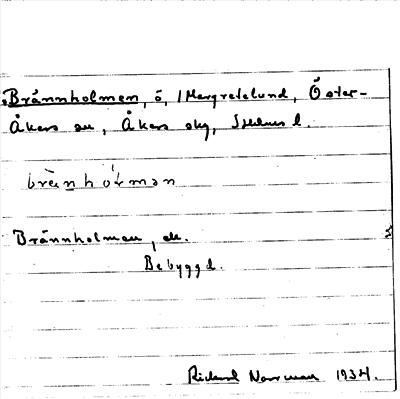 Brännholmen, ö, Margretelund, Öster-
Åkers sn, Åkers sky, Sthlms l.
brä̀nhòlmən
Brännholmen, ek.
Bebyggd.
Rickard Norrman 1934.